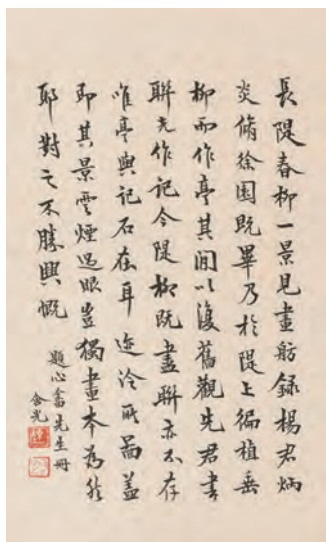 長隄春柳一景見畫舫録楊君炳
炎脩徐園既畢乃於隄上徧植垂
柳而作亭其間以復舊觀先君書
聯光作記今隄柳既盡聯亦不存
唯亭與記石在耳迹冷所畵蓋
即其景雲煙過眼豈獨畫本為然
耶對之不勝興慨
題心畬先生冊
含光